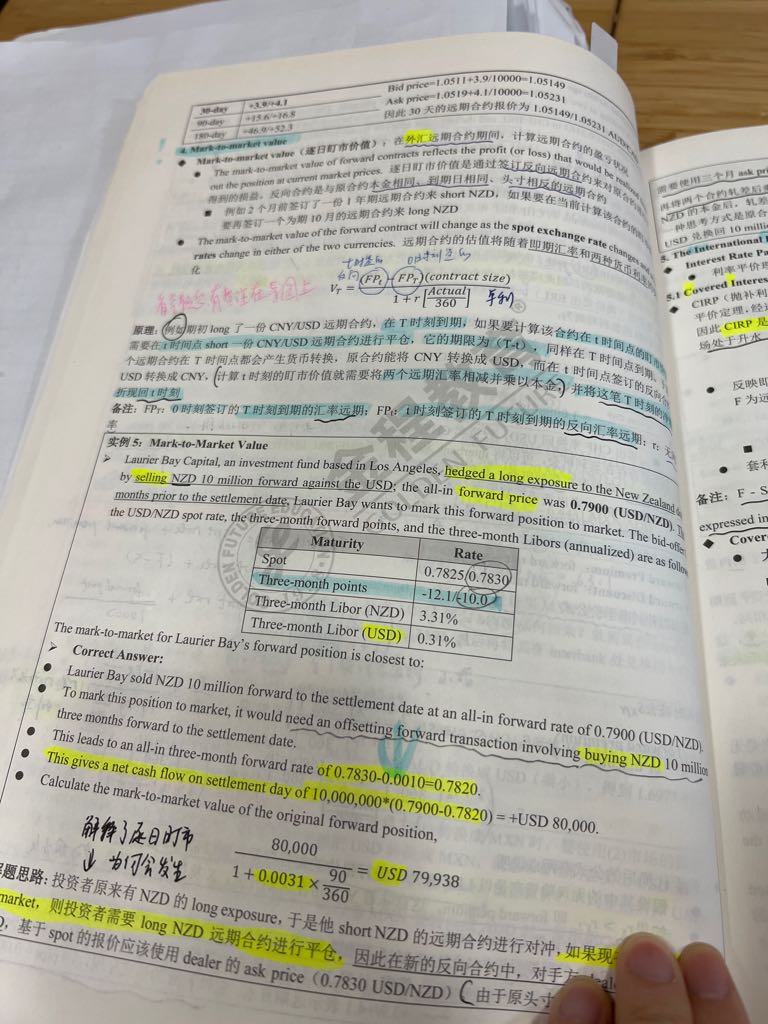 30-day +3.9/+4.1 Bid price=1.0511+3.9/10000=1.05149
90-day +15.6/+16.8 Ask price=1.0519+4.1/10000=1.05231
180-day +46.9/+52.3 因此 30 天的远期合约报价为 1.05149/1.05231
4. Mark-to-market value
◆ Mark-to-market value（逐日盯市价值）：在外汇远期合约期间，计算远期合约的盈亏状况
● The mark-to-market value of forward contracts reflects the profit (or loss) that would be realized
out the position at current market prices. 逐日盯市价值是通过签订反向远期合约来对原合约
得到的损益，反向合约是与原合约本金相同、到期日相同、头寸相反的远期合约
■ 例如 2 个月前签订了一份 1 年期远期合约来 short NZD，如果要在当前计算该合约的
要再签订一个为期 10 月的远期合约来 long NZD
● The mark-to-market value of the forward contract will change as the spot exchange rate changes
rates change in either of the two currencies. 远期合约的估值将随着即期汇率和两种货币利率的
化
t时签约 0时刻签约
反向
V_T = (FP_t - FP_T)(contract size) / 1 + r [Actual/360] 单利
原理：例如期初 long 了一份 CNY/USD 远期合约，在 T 时刻到期，如果要计算该合约在 t 时间点的盯市
需要在 t 时间点 short 一份 CNY/USD 远期合约进行平仓，它的期限为（T-t），同样在 T 时间点到期。
个远期合约在 T 时间点都会产生货币转换，原合约能将 CNY 转换成 USD，而在 t 时间点签订的反向合
USD 转换成 CNY，（计算 t 时刻的盯市价值就需要将两个远期汇率相减并乘以本金）并将这笔 T 时刻的
折现回 t 时刻
备注：FP_T：0 时刻签订的 T 时刻到期的汇率远期；FP_t：t 时刻签订的 T 时刻到期的反向汇率远期；r：
率
实例 5：Mark-to-Market Value
➢ Laurier Bay Capital, an investment fund based in Los Angeles, hedged a long exposure to the New Zealand
by selling NZD 10 million forward against the USD; the all-in forward price was 0.7900 (USD/NZD).
months prior to the settlement date, Laurier Bay wants to mark this forward position to market. The bid-offer
the USD/NZD spot rate, the three-month forward points, and the three-month Libors (annualized) are as follow
Maturity Rate
Spot 0.7825/0.7830
Three-month points -12.1/-10.0
Three-month Libor (NZD) 3.31%
Three-month Libor (USD) 0.31%
The mark-to-market for Laurier Bay's forward position is closest to:
➢ Correct Answer:
● Laurier Bay sold NZD 10 million forward to the settlement date at an all-in forward rate of 0.7900 (USD/NZD).
● To mark this position to market, it would need an offsetting forward transaction involving buying NZD 10 million
three months forward to the settlement date.
● This leads to an all-in three-month forward rate of 0.7830-0.0010=0.7820.
● This gives a net cash flow on settlement day of 10,000,000*(0.7900-0.7820) = +USD 80,000.
● Calculate the mark-to-market value of the original forward position,
80,000 / 1 + 0.0031 × 90/360 = USD 79,938
解释了逐日盯市
为何会发生
解题思路：投资者原来有 NZD 的 long exposure，于是他 short NZD 的远期合约进行对冲，如果现
market，则投资者需要 long NZD 远期合约进行平仓，因此在新的反向合约中，对手方
基于 spot 的报价应该使用 dealer 的 ask price（0.7830 USD/NZD）（由于原头寸
需要使用三个月 ask
再将两个合约轧差后
NZD 的本金后，轧差
种思考方式是原合
USD 兑换回 10
5. The International
Interest Rate Pa
● 利率平价理
5.1 Covered Interes
➢ CIRP（抛补利
平价定理，经
因此 CIRP 是
场处于升水
● 反映即
F 为远
● 套利
备注：F - S
expressed in
◆ Cover